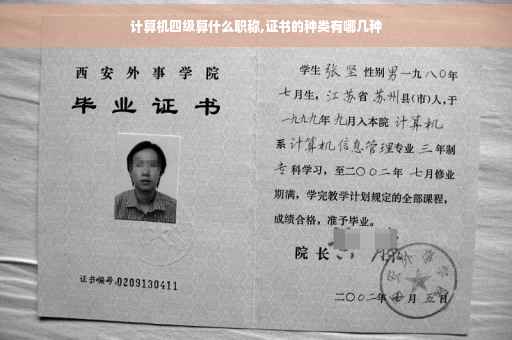 计算机四级算什么职称,证书的种类有哪几种
西安外事学院
毕业证书
证书编号:0209130411
学生 张坚 性别 男 一九八〇年
七月生, 江苏省 苏州县(市)人,于
一九九九年 九月入本院 计算机
系 计算机信息管理 专业 三 年制
专科学习,至二〇〇二年 七月修业
期满,学完教学计划规定的全部课程,
成绩合格,准予毕业。
院长
二〇〇二年 七 月 五 日